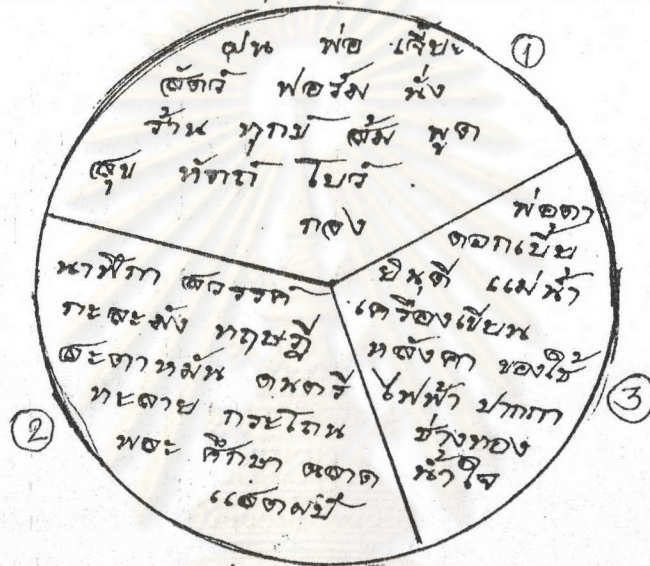 ฝน พ่อ เจี๊ยะ
สัตว์ ฟอร์ม นั่ง
ร้าน ทุกข์ ส้ม พูด
สุข หัตถ์ โบว์
กอง
①
นาฬิกา สวรรค์
กะละมัง ทฤษฎี
สะตาหมัน ดนตรี
ทะลาย กระโถน
พละ ศึกษา ตลาด
แสตมป์
②
พ่อตา
ดอกเบี้ย
ยินดี แม่น้ำ
เครื่องเขียน
หลังคา ของใช้
ไฟฟ้า ปากกา
ช่างทอง
น้ำใจ
③